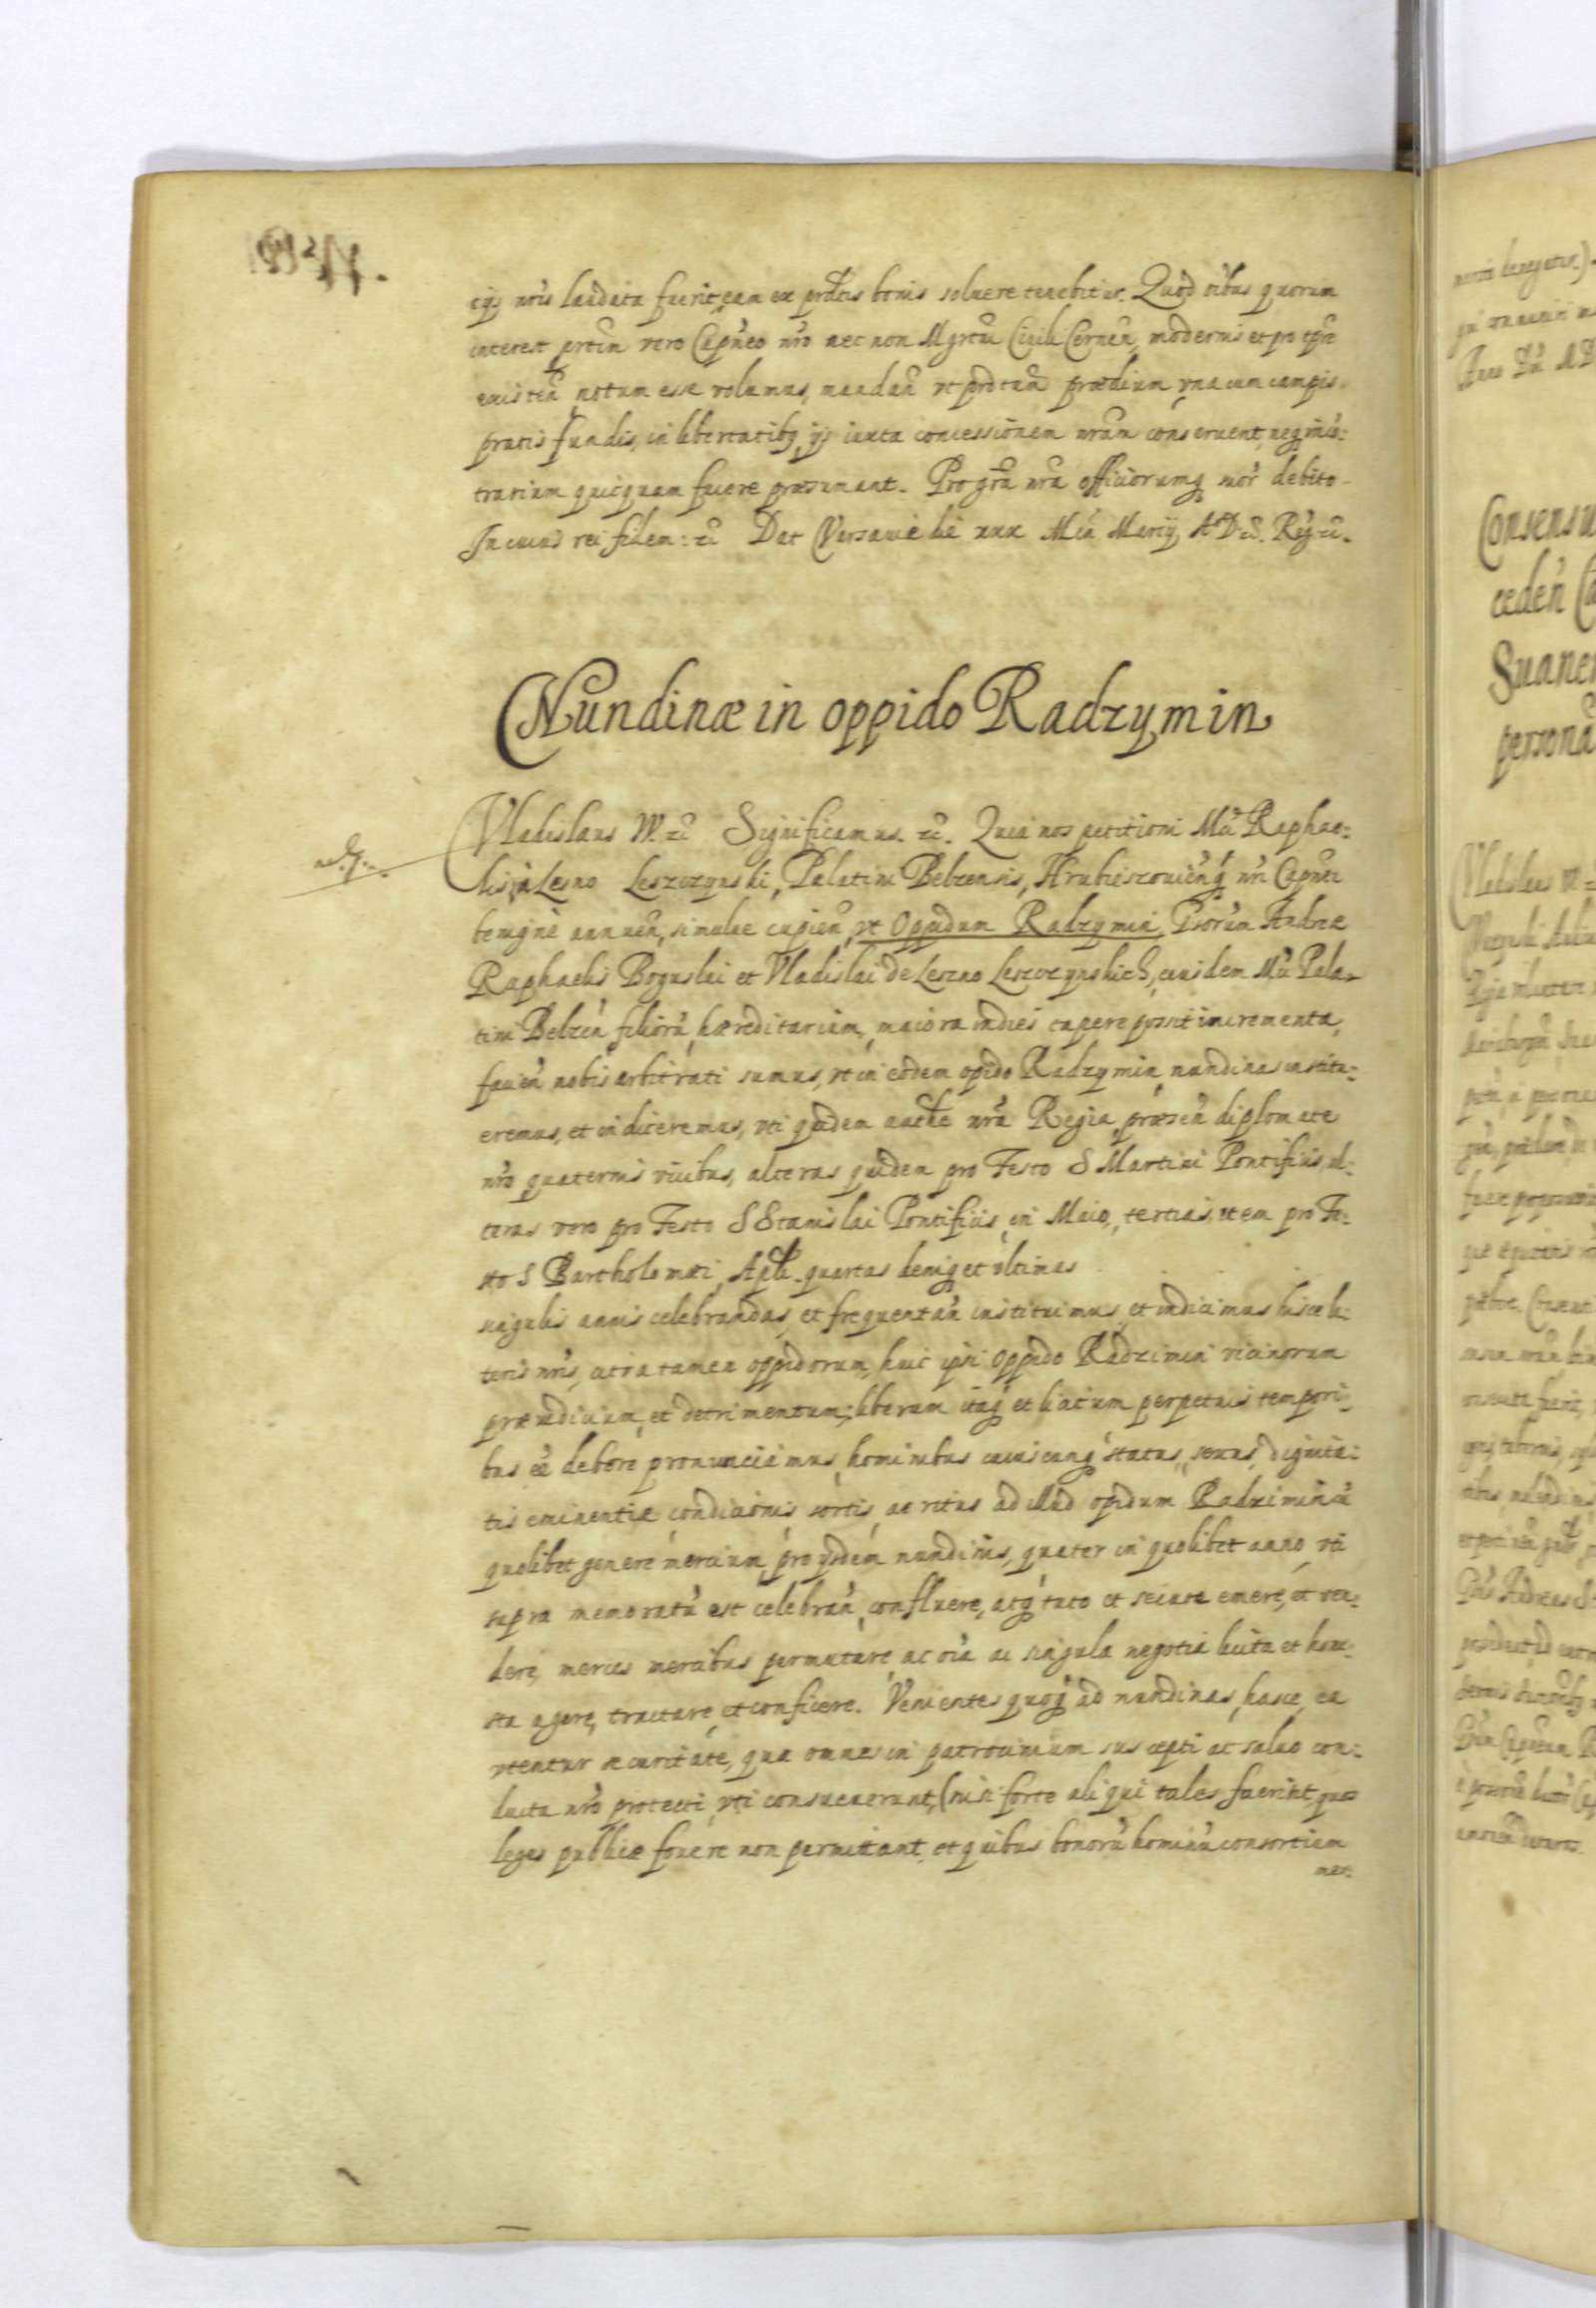 cijs nris laudata fuerit, eam ex prdtis bonis soluere tenebitur. Quod oibus quorum
interest prtim vero Capneo nro nec non Mgrtui Ciuili Cernen, moderni et pro tpre
existen notum esse volumus, mandan vt prdtum prædium vna cum campis
pratis fundis, in libertatibq ijs iuxta concessionem nram conseruent, neq in co:
trarium quicquam facere præsumant. Pro gra nra officiorumq suor debito
In cuius rei fidem: &c Dat Varsauiæ die xxx Men Martij A D &c. Reg &c.
Nundinæ in oppido Radzymin
Vladislaus IV. &c Significamus. &c. Quia nos petitioni Mci Raphae:
lis à Lesno Leszczynski, Palatini Belzensis, Hrubieszouien nri Capnei
benignè annuen, simulac cupien, vt Oppidum Radzymin, Gsorum Andreæ
Raphaelis Boguslai et Vladislai de Leszno Leszczynskich, eiusdem Mci Pala-
tini Belzen filioru, hæreditarium, maiora indies capere possit incrementa,
facien nobis arbitrati sumus, vt in eodem opido Radzymin nundinas institu:
eremus, et indiceremus, vti quidem aucthe nra Regia præsen diplomate
nro quaternis vicibus, alteras quidem pro Festo S Martini Pontificis, al:
teras vero pro Festo S Stanislai Pontificis in Maio, tertias item pro Fe:
sto S Bartholomæi Apli quartas deniq et vltimas
singulis annis celebrandas et frequentan instituimus et indicimus hisce li:
teris nris, citra tamen oppidorum, huic ipsi Oppido Radzimin vicinorum
præiudicium, et detrimentum; liberum itaq et licitum perpetuis tempori:
bus ee debere pronunciamus, hominibus cuiuscunq status, sexus, dignita:
tis eminentiæ condicionis sortis, ac ritus ad illud opidum Radziminen
quolibet genere mercium, pro ijsdem nundinis, quater in quolibet anno, vti
supra memoratu est celebran, confluere, atq tuto et secure emere, et ven:
dere, merces mercibus permutare, ac oia ac singula negotia licita et hone:
sta agere, tractare, et conficere. Venientes quoq ad nundinas, hasce, ea
vtentur securitate, qua omnes in patrocinium suscepti ac saluo con:
ductu nro protecti, vti consueuerunt, (nisi forte aliqui tales fuerint, quos
leges publicæ fouere non permittant, et quibus bonoru hominu consortium
mer: